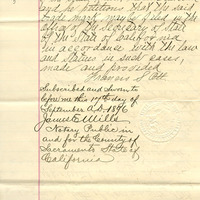 and he petitions that the said
trade mark may be filed in the
office of the Secretary of State
of the State of California
in accordance with the law
and Statues in such cases,
made and provided
Francis S Ott
Subscribed and Sworn to
before me this 17th day of
September A.D. 1896
James E Mills
Notary Public in
and for the County of
Sacramento State of
California